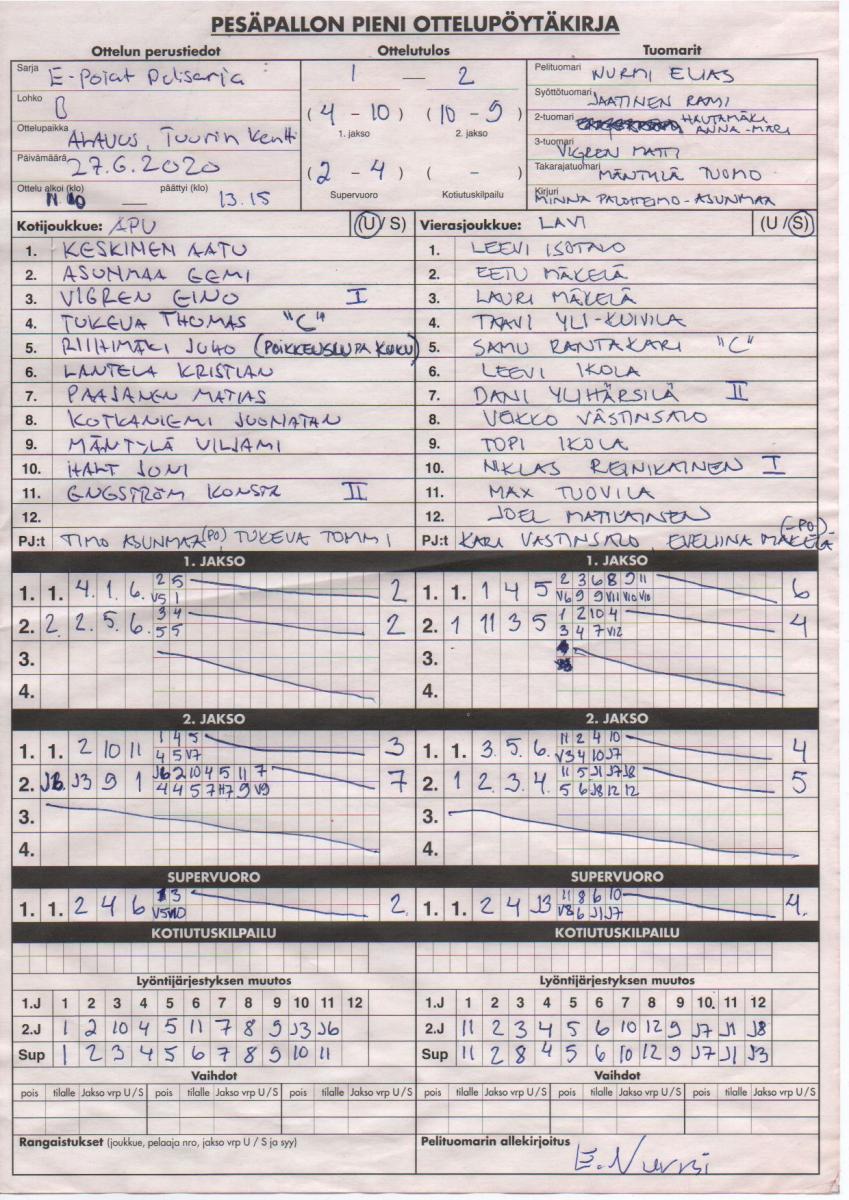 PESÄPALLON PIENI OTTELUPÖYTÄKIRJA
Ottelun perustiedot Ottelutulos Tuomarit
Sarja E-Pojat Pulisarja
Lohko B
Ottelupaikka ALAVUS, Tuurin kentti
Päivämäärä 27.6.2020
Ottelu alkoi (klo) — päättyi (klo) 13.15
1 — 2
(4 - 10) (10 - 9)
1. jakso 2. jakso
(2 - 4) ( - )
Supervuoro Kotiutuskilpailu
Pelituomari NURMI ELIAS
Syöttötuomari JAATINEN RAMI
2-tuomari HAUTAMÄKI ANNA-MARI
3-tuomari VIGREN MATTI
Takarajatuomari MÄNTYLÄ TUOMO
Kirjuri MINNA PALOHEIMO-ASUNMAA
Kotijoukkue: APU (U / S) Vierasjoukkue: LAVI (U / S)
1. KESKINEN AATU 1. LEEVI ISOTALO
2. ASUNMAA EEMI 2. EETU MÄKELÄ
3. VIGREN EINO I 3. LAURI MÄKELÄ
4. TUKEVA THOMAS "C" 4. TAAVI YLI-KUIVILA
5. RIIHIMÄKI JUHO (POIKKEUSLUPA KUKU) 5. SAMU RANTAKARI "C"
6. LANTELA KRISTIAN 6. LEEVI IKOLA
7. PAAJANEN MATIAS 7. DANI YLIHÄRSILÄ II
8. KOTKANIEMI JUONATAN 8. VEKKO VÄSTINSALO
9. MÄNTYLÄ VILJAMI 9. TOPI IKOLA
10. HALT JONI 10. NIKLAS REINIKAINEN I
11. ENGSTRÖM KONSTA II 11. MAX TUOVILA
12. 12. JOEL MATILAINEN
PJ:t TIMO ASUNMAA (PO), TUKEVA TOMMI PJ:t KARI VÄSTINSALO, EVELIINA MÄKELÄ (-PO)
1. JAKSO 1. JAKSO
1. 1. 4. 1. 6. 2 5 2 1. 1. 1 4 5 2 3 6 8 9 11 6
V5 1 V6 9 9 V11 V10 V10
2. 2. 2. 5. 6. 3 4 2 2. 1 11 3 5 1 2 10 4 4
5 5 3 4 7 V12
3. 3.
4. 4.
2. JAKSO 2. JAKSO
1. 1. 2 10 11 1 4 5 3 1. 1. 3. 5. 6. 11 2 4 10 4
4 5 V7 V3 4 10 J7
2. J6. J3 9 1 J6 2 10 4 5 11 7 7 2. 1 2. 3. 4. 11 5 J1 J7 J8 5
4 4 5 7 H7 9 V9 5 6 J8 12 12
3. 3.
4. 4.
SUPERVUORO SUPERVUORO
1. 1. 2 4 6 3 2. 1. 1. 2 4 J3 11 8 6 10 4.
V5 V10 V8 6 J1 J7
KOTIUTUSKILPAILU KOTIUTUSKILPAILU
Lyöntijärjestyksen muutos Lyöntijärjestyksen muutos
1.J 1 2 3 4 5 6 7 8 9 10 11 12 1.J 1 2 3 4 5 6 7 8 9 10. 11 12
2.J 1 2 10 4 5 11 7 8 9 J3 J6 2.J 11 2 3 4 5 6 10 12 9 J7 J1 J8
Sup 1 2 3 4 5 6 7 8 9 10 11 Sup 11 2 8 4 5 6 10 12 9 J7 J1 J3
Vaihdot Vaihdot
pois tilalle Jakso vrp U / S pois tilalle Jakso vrp U / S pois tilalle Jakso vrp U / S pois tilalle Jakso vrp U / S pois tilalle Jakso vrp U / S pois tilalle Jakso vrp U / S
Rangaistukset (joukkue, pelaaja nro, jakso vrp U / S ja syy) Pelituomarin allekirjoitus
E. Nurmi